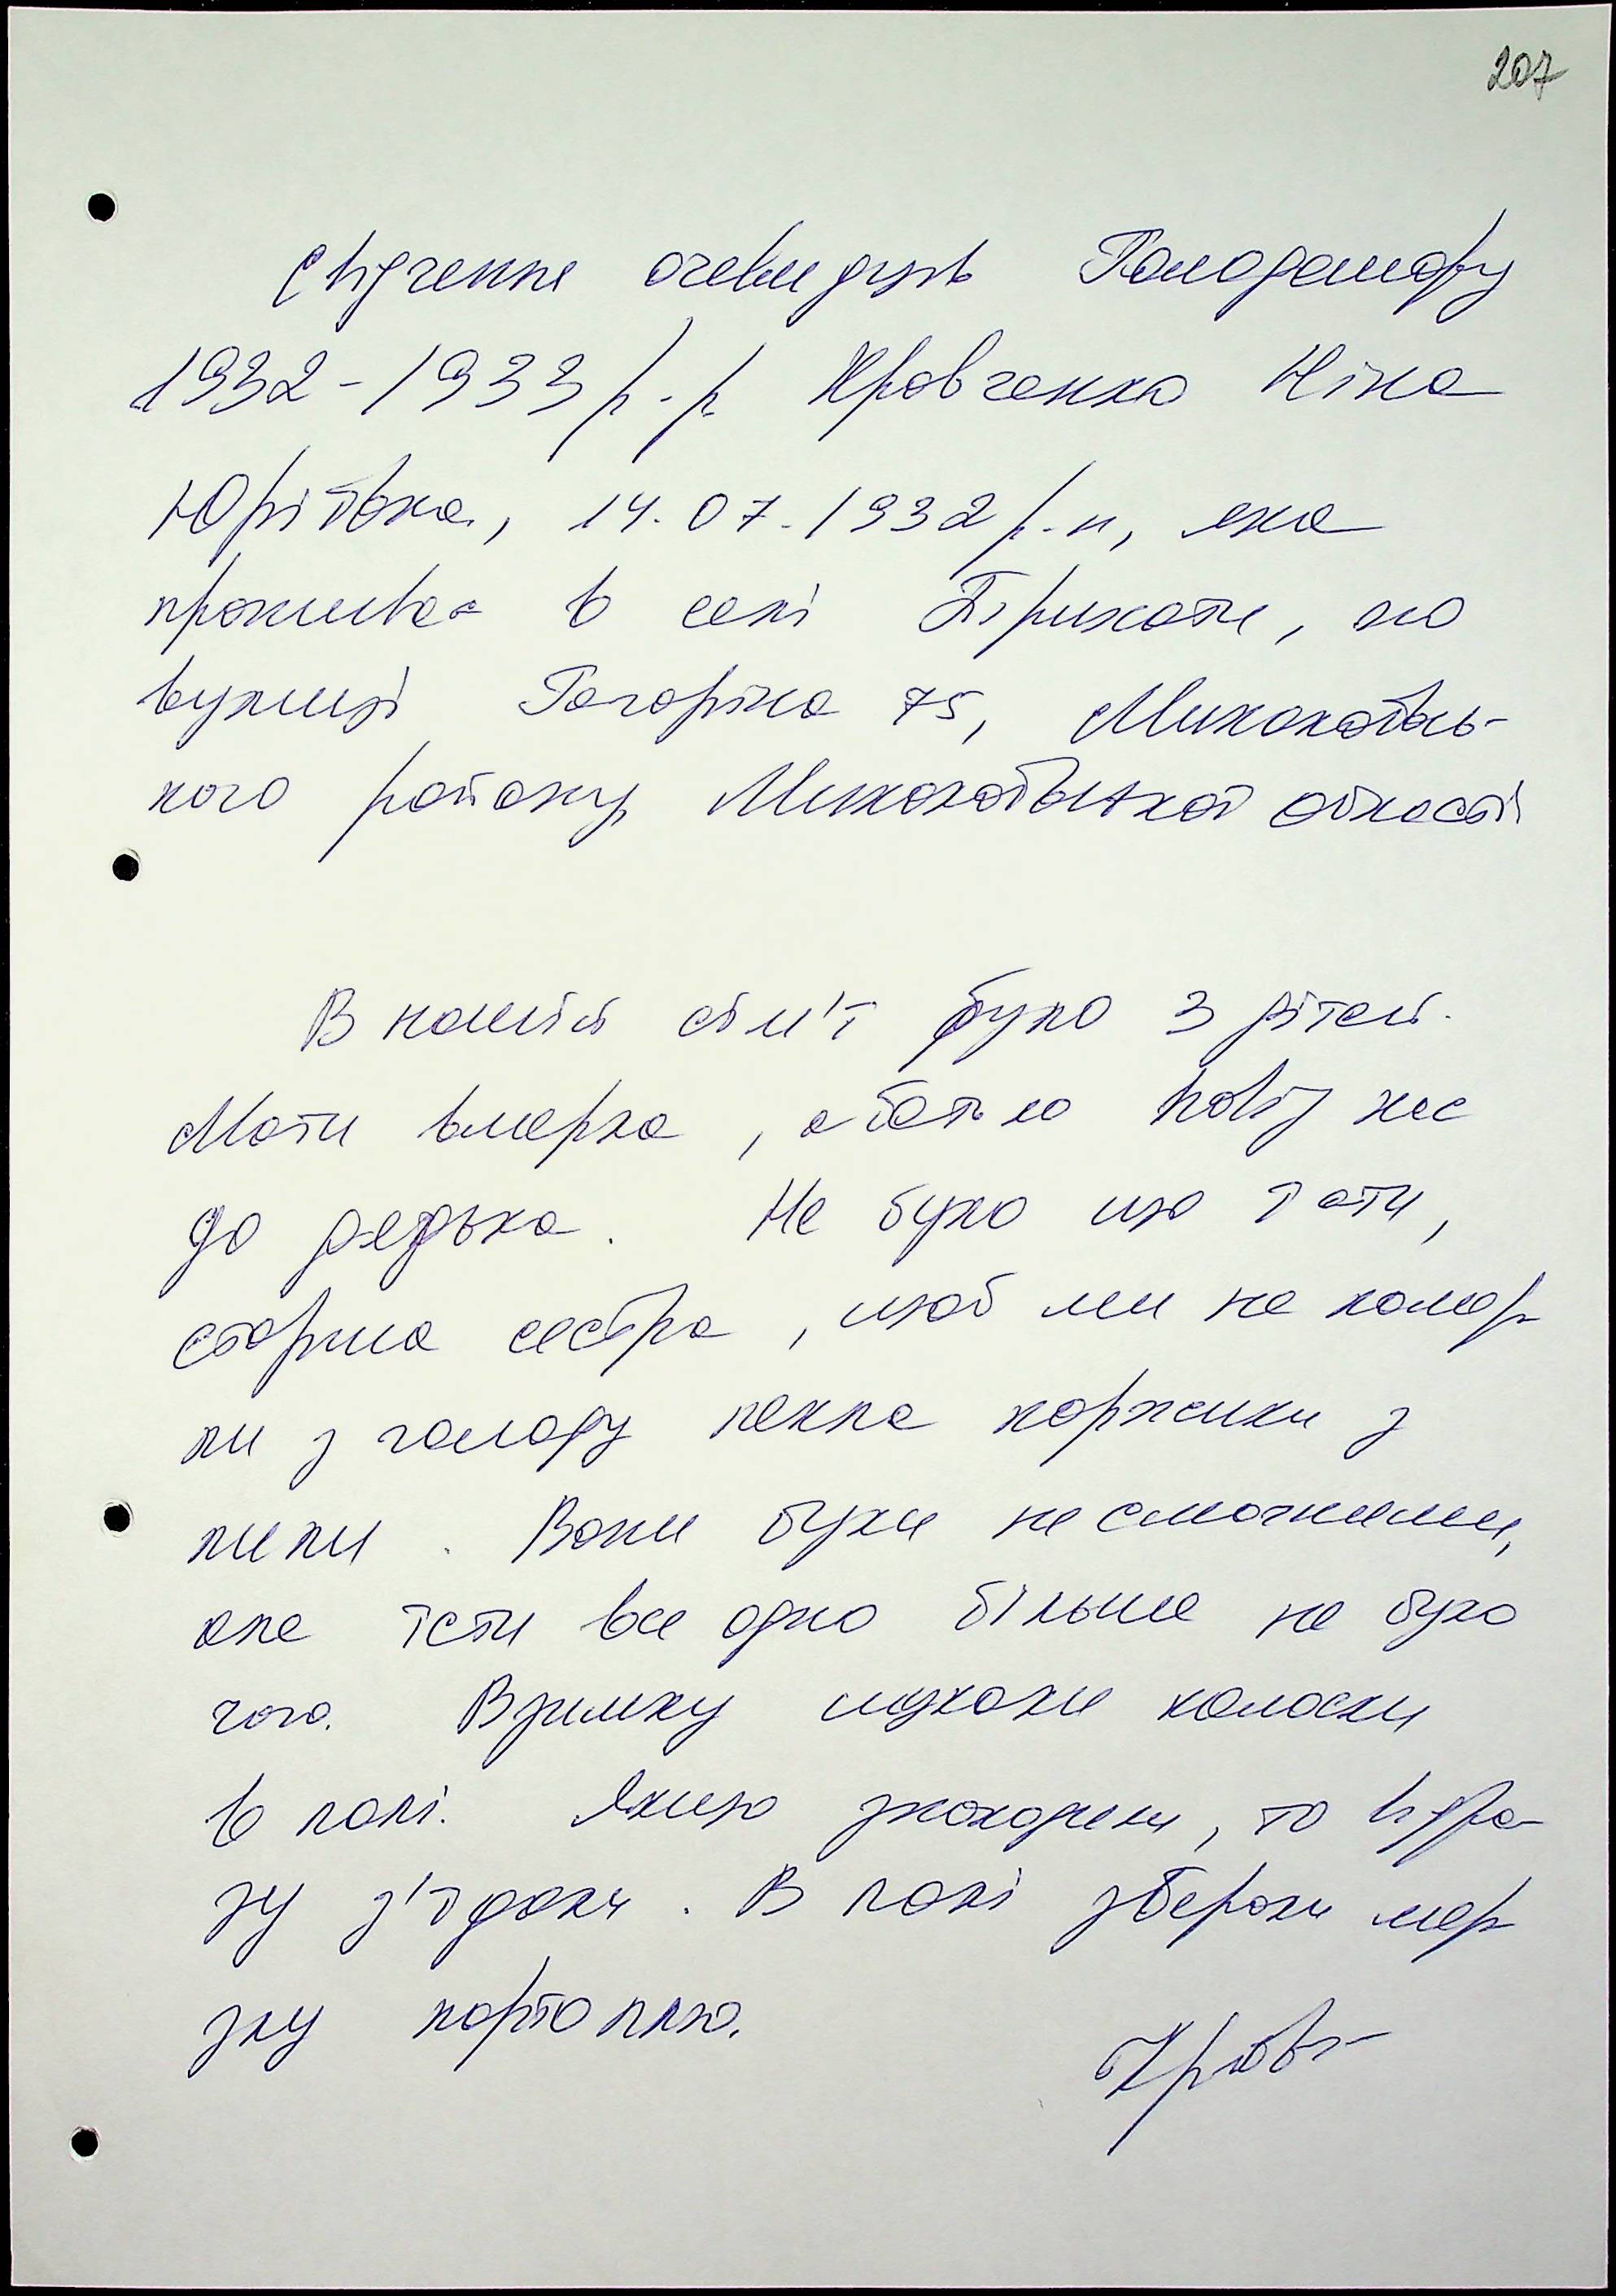 207
Свідчення очевидців Голодомору
1932-1933 р.р Кравченко Ніна
Юріївна, 14.07.1932 р.н, яка
проживає в селі Трихати, по
вулиці Гагаріна 75, Миколаївсь-
кого району Миколаївської області
В нашій сім'ї було 3 дітей.
Мати вмерла, а батько повіз нас
до дядька. Не було що їсти,
старша сестра, щоб ми не помер
ли з голоду пекла коржики з
липи. Вони були не смачними,
але їсти все одно більше не було
чого. Взимку шукали колоски
в полі. Якщо знаходили, то відра-
зу з'їдали. В полі збирали мер
злу картоплю.